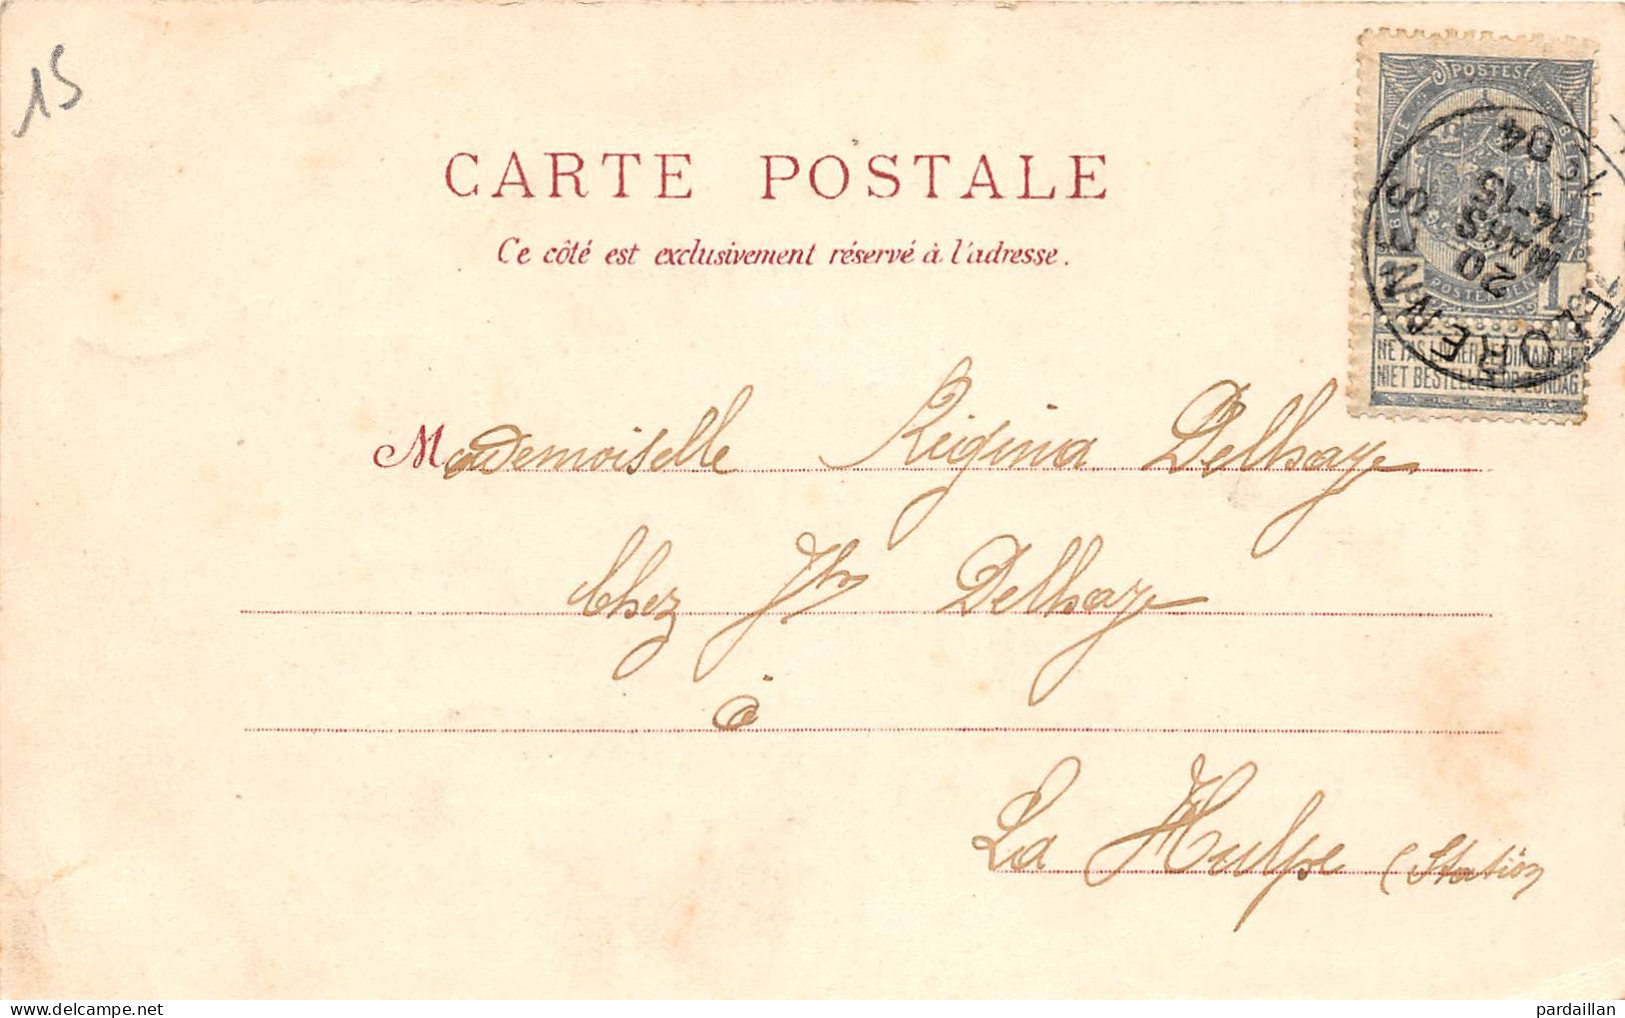 15
CARTE POSTALE
Ce côté est exclusivement réservé à l'adresse.
POSTES
BELGIQUE BELGIE
POSTERIJEN
1
NE PAS LIVRER LE DIMANCHE
NIET BESTELLEN OP ZONDAG
FLORENNES
20
MARS
14-15
04
Mademoiselle Régina Delhaye
Chez Jh Delhaye
à
La Hulpe (Station
pardaillan